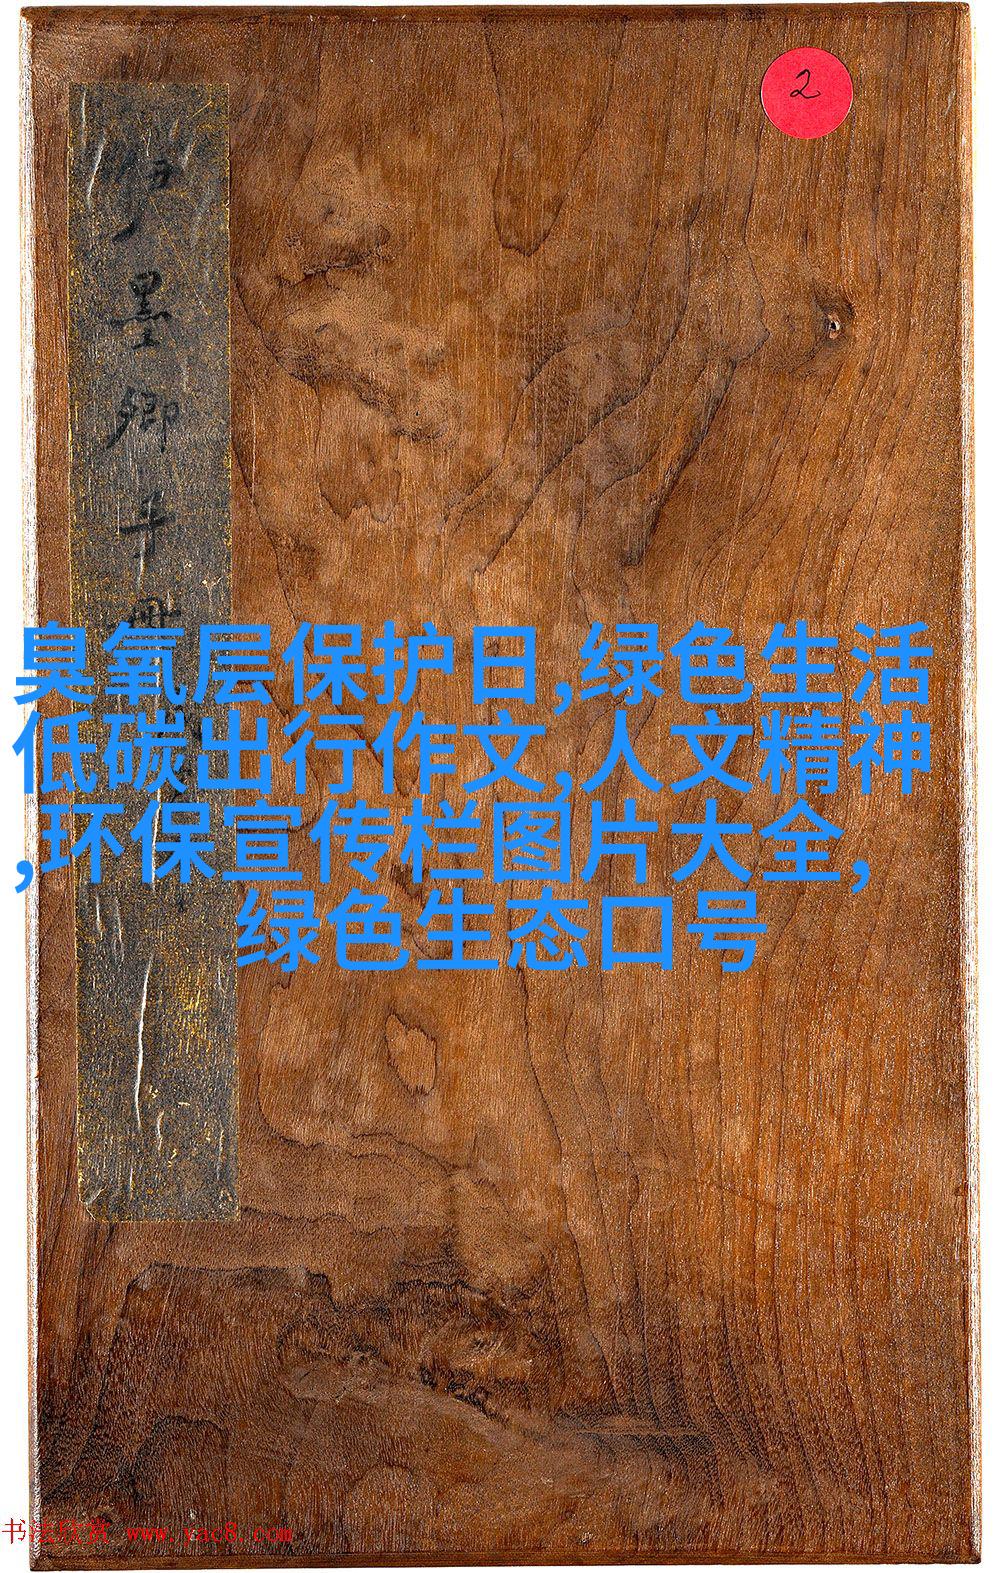 2
墨卿手冊
臭氧层保护日,绿色生活
低碳出行作文,人文精神
,环保宣传栏图片大全,
绿色生态口号
书法欣赏 www.yac8.com